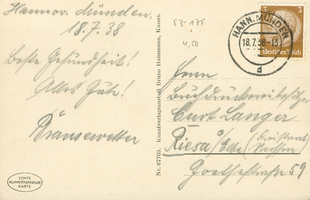 Hannov. Münden,
18.7.38
Beste Gesundheit!
Alles Gute!
53-175
4,50
Nr. 67769. Kunstverlagsanstalt Bruno Hansmann, Kassel.
HANN. MÜNDEN
18.7.38
d
Deutsches Reich
3
Herrn
Curt Langer
Riesa a/Elbe (Freistaat
Sachsen)
Goethestraße 59
ECHTE
KARTE